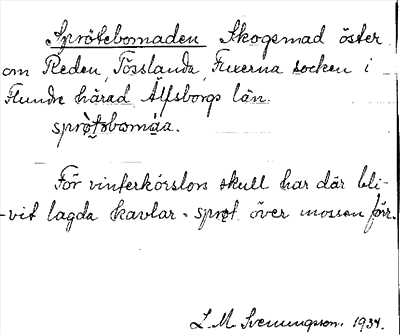 Sprötebomaden Skogsmad öster
om Reden, Tösslanda, Fuxerna socken i
Flundre härad Älfsborgs län.
sprötsbomäa.
För vinterkörslors skull har där bli-
-vit lagda kavlar = spröt över mossen förr.
L. M. Svenungsson. 1934.